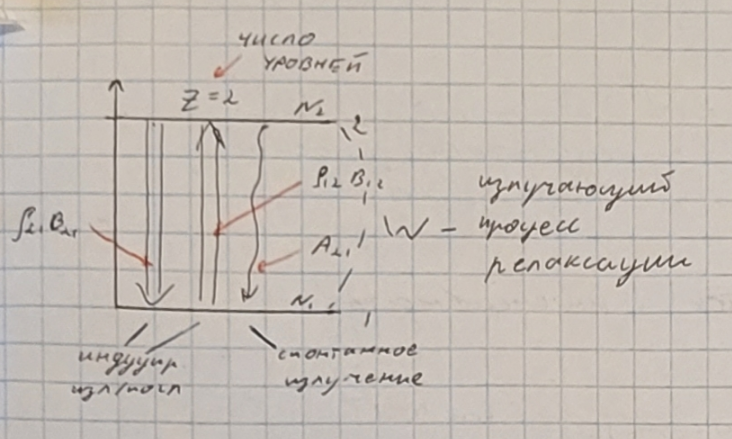 число
уровней
Z = 2
N₂
2
ρ₁₂ B₁₂
ρ₂₁ B₂₁
A₂₁
W – излучающий
процесс
релаксации
N₁
1
индуцир
изл/погл
спонтанное
излучение